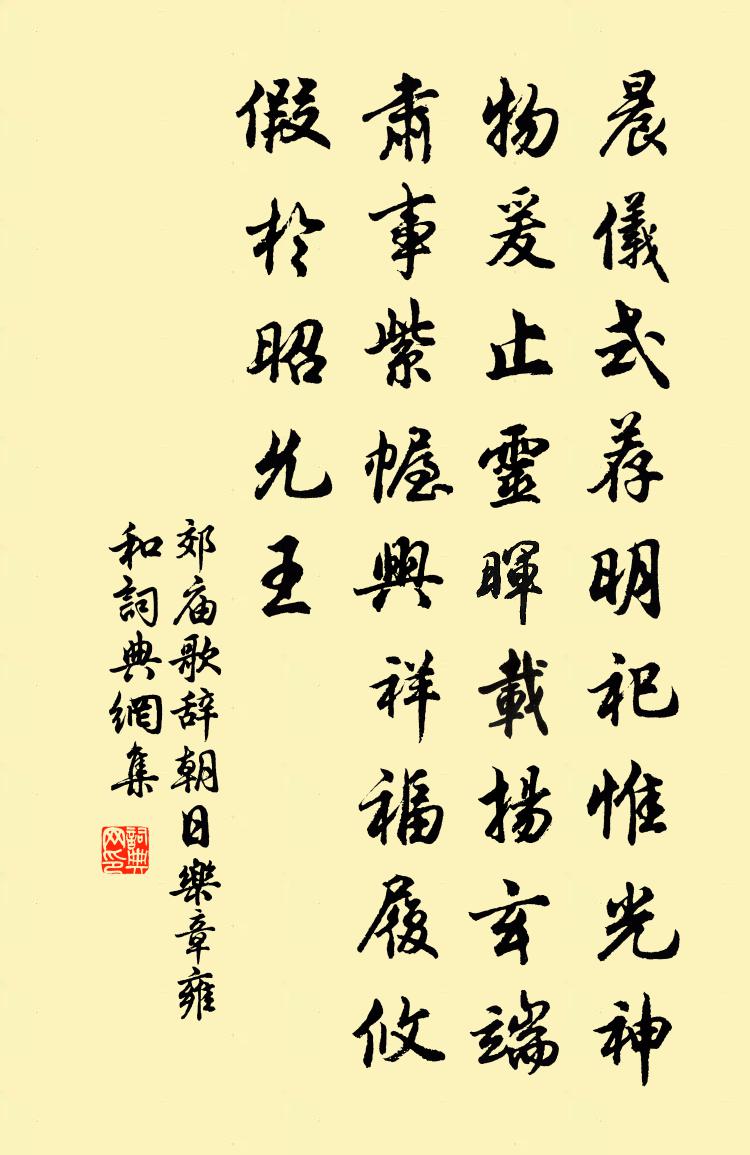 晨儀式荐明祀惟光神
物爰止靈暉載揚玄端
肅事紫幄興祥福履攸
假於昭允王
郊庙歌辞朝日樂章雍
和詞典網集
詞典
网印